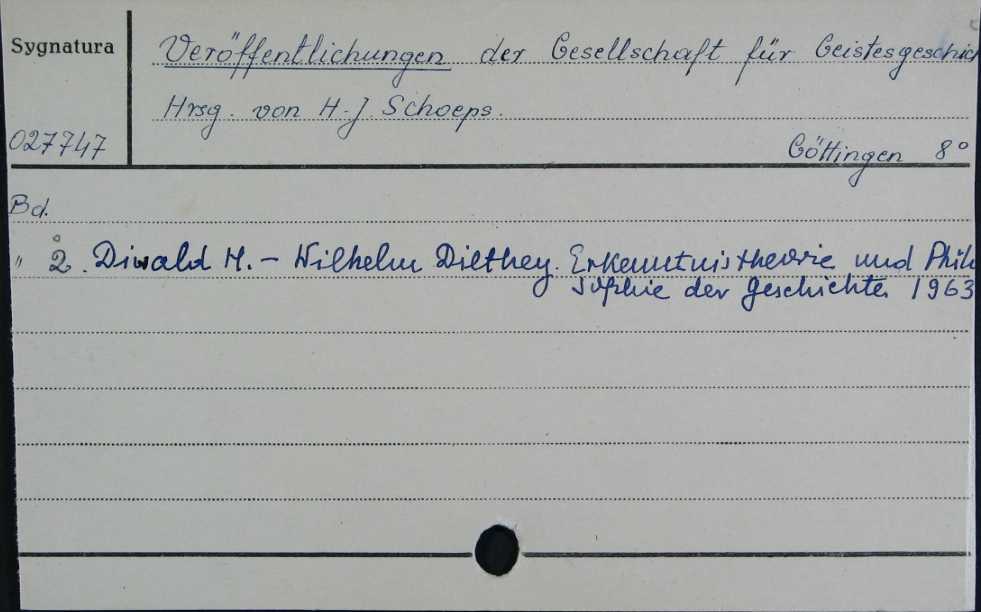 Sygnatura
Veröffentlichungen der Gesellschaft für Geistesgeschich
Hrsg. von H-J. Schoeps.
027747
Göttingen 8°
Bd.
" 2. Diwald H. - Wilhelm Dilthey. Erkenntnistheorie und Philo
sophie der Geschichte 1963